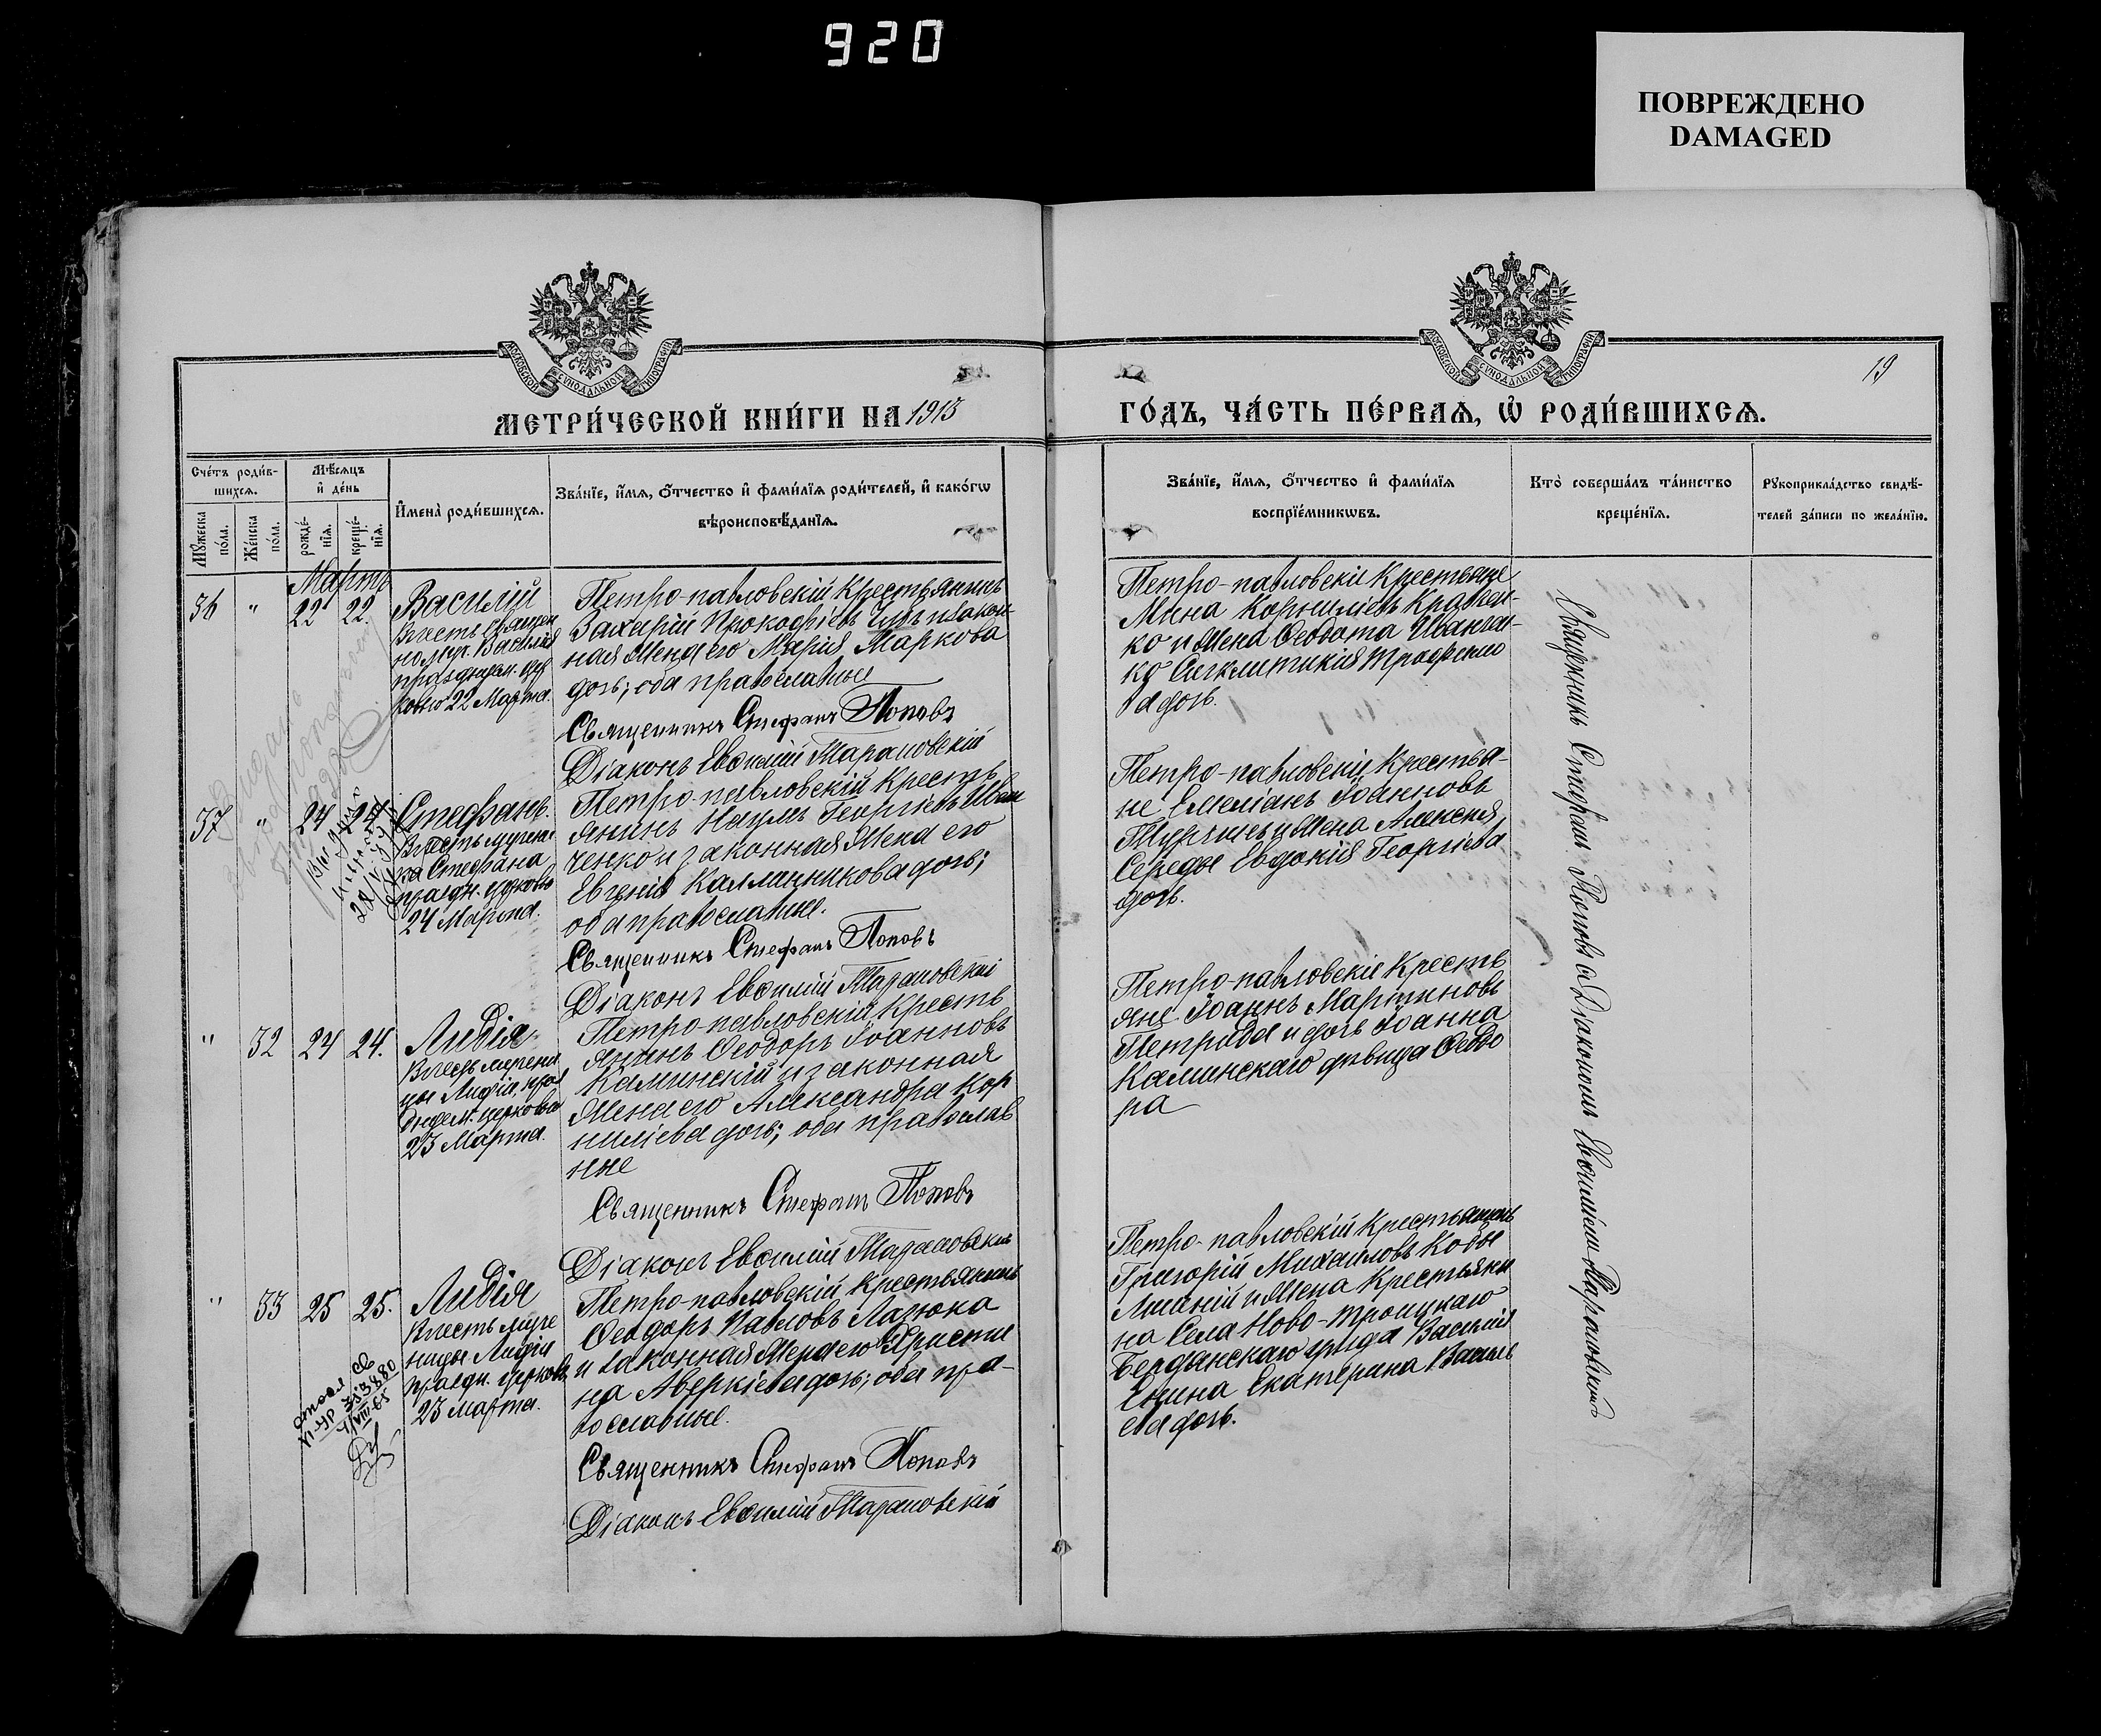 920
ПОВРЕЖДЕНО
DAMAGED
МОСКОВСКОЙ СѴНОДАЛЬНОЙ ТИПОГРАФІИ
МОСКОВСКОЙ СѴНОДАЛЬНОЙ ТИПОГРАФІИ
19
МЕТРИ́ЧЕСКОЙ КНИ́ГИ НА 1913
ГО́ДЪ, ЧА́СТЬ ПЕ́РВАѦ, Ѡ҆ РОДИ́ВШИХСѦ.
Сче́тъ роди́в-
шихсѧ.
Мꙋ́жеска
по́ла.
Же́нска
по́ла.
Мѣ́сѧцъ
и҆ де́нь
рожде́-
нїѧ.
креще́-
нїѧ.
И҆мена̀ роди́вшихсѧ.
Зва́нїе, и҆́мѧ, ѻ҆́тчество и҆ фами́лїѧ роди́телей, и҆ како́гѡ
вѣроисповѣ́данїѧ.
Зва́нїе, и҆́мѧ, ѻ҆́тчество и҆ фами́лїѧ
воспрїе́мникѡвъ.
Кто̀ соверша́лъ та́инство
креще́нїѧ.
Рꙋкоприкла́дство свидѣ́-
телей за́писи по жела́нїю.
Мартъ
36 " 22 22.
Василій
Въ честь священ
но муч. Василія
празднуем. цер
ковію 22 Марта.
Петро-павловскій Крестьянинъ
Захарій Прокофіевъ и закон
ная жена его Марія Маркова
дочь; оба православные
Священникъ Стефанъ Поповъ
Діаконъ Евѳимій Тарановскій
Петро-павловскіе Крестьяне
Мина Корниліевъ Кравчен-
ко и жена Ѳеодота Иванчен-
ко Синклитикія Трофимо
ва дочь.
37 " 24 24
Стефанъ.
Въ честь мучени
ка Стефана
праздн. церковію
24 Марта.
Петро-павловскій Кресть
янинъ Наумъ Георгіевъ Иван
ченко и законная жена его
Евгенія Каллиникова дочь;
оба православные.
Священникъ Стефанъ Поповъ
Діаконъ Евѳимій Тарановскій
Петро-павловскіе Крестья-
не Емеліанъ Іоанновъ
и жена Алексія
Середы Евдокія Георгіева
дочь.
" 32 24 24.
Лидія
Въ честь мучени
цы Лидіи, праз
днуем. церковію
23 Марта.
Петро-павловскій Кресть
янинъ Ѳеодоръ Іоанновъ
Каминскій и законная
жена его Александра Кор
ниліева дочь; оба православ
ные
Священникъ Стефанъ Поповъ
Діаконъ Евѳимій Тарановскій
Петро-павловскіе Кресть
яне Іоаннъ Мартиновъ
и дочь Іоанна
Каминскаго дѣвица Ѳеодо
ра
" 33 25 25.
Лидія
Въ честь муче
ницы Лидіи
праздн. церковію
23 Марта.
Петро-павловскій Крестьянинъ
Ѳеодоръ Павловъ Лазюка
и законная жена его Христи
на Аверкіева дочь; оба пра-
вославные.
Священникъ Стефанъ Поповъ
Діаконъ Евѳимій Тарановскій
Петро-павловскій Крестьянинъ
Григорій Михаиловъ Кобы
и жена Крестьяни
на Села Ново-Троицкаго
Бердянскаго уѣзда Василія
Енина Екатерина Василь
ева дочь.
Священникъ Стефанъ Поповъ съ Діакономъ Евѳиміемъ Тарановскимъ